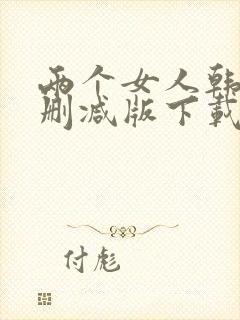 两个女人韩
删减版下载
付彪